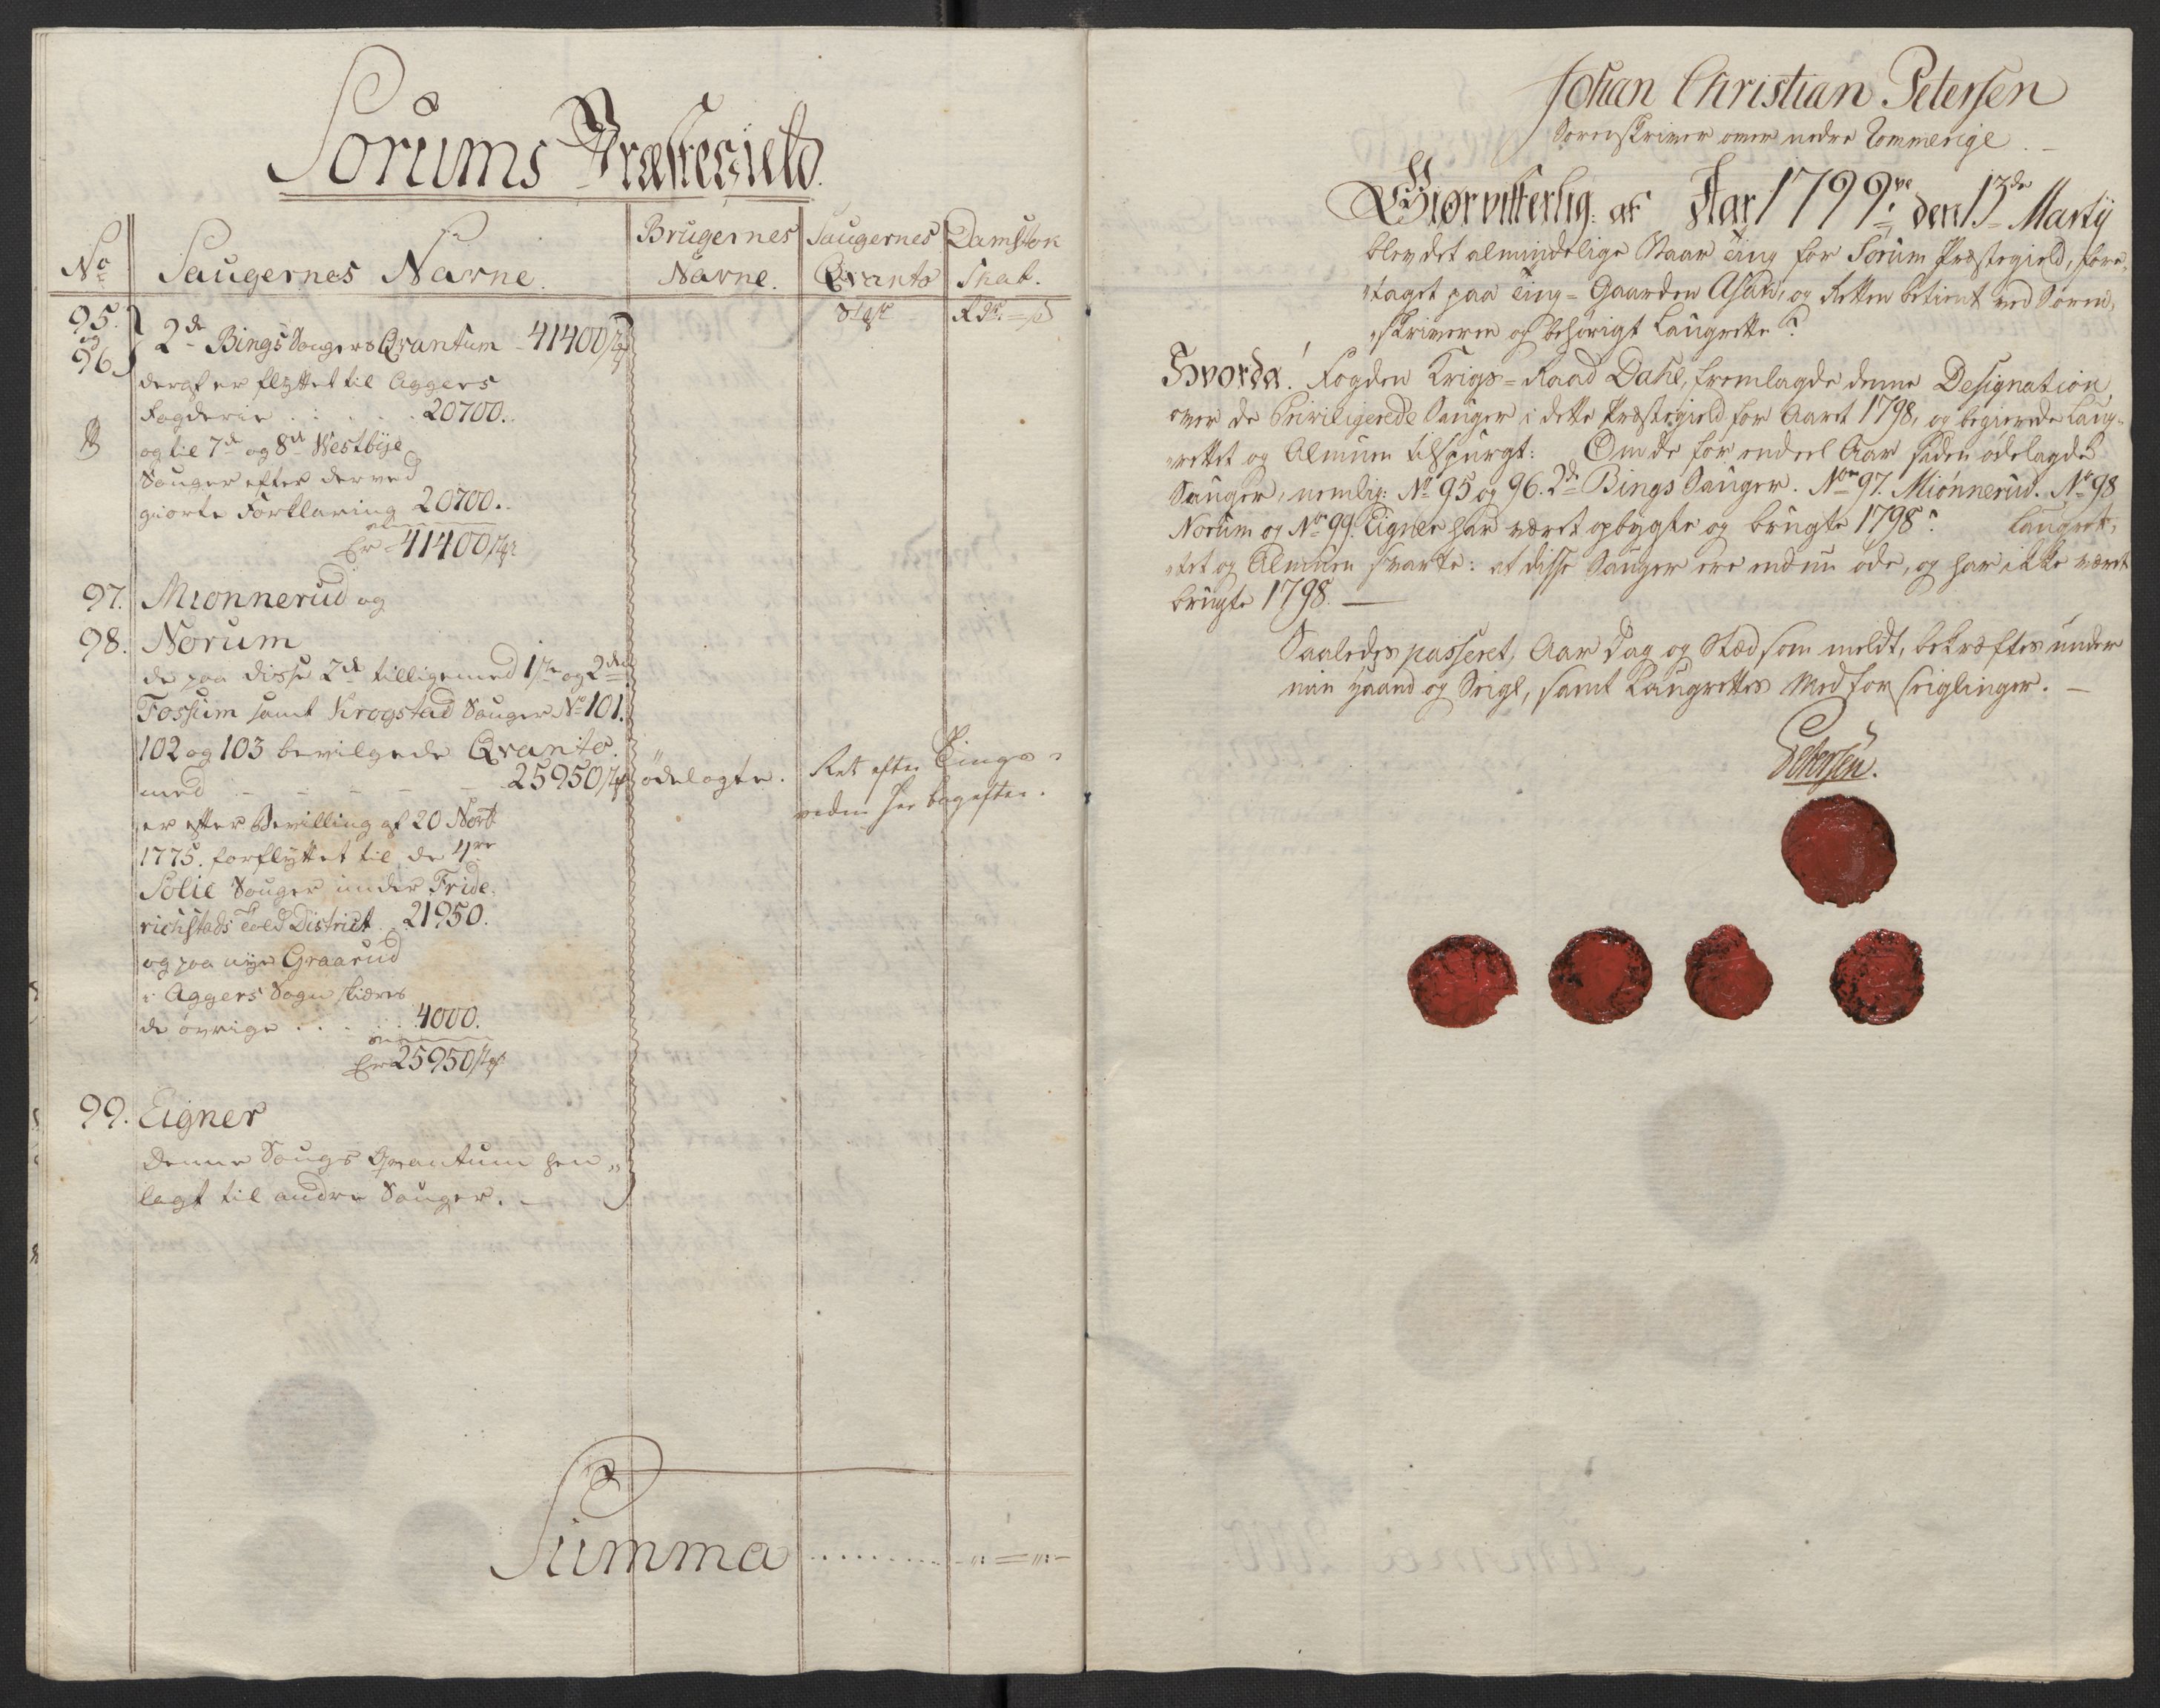 Sørums Præstegield.
No
Saugernes Navne.
Brugernes
Navne.
Saugernes
Qvanto
Damstok
Skat.
95.
og
96.
2de Bings Sauger Qvantum 41400
deraf er flyttet til Aggers
Fogderie . . . . 20700.
og til 7de og 8de Westbye
Sauger efter derved
giorte Forklaring 20700.
Er 41400
97. Miønnerud og
98. Norum
de paa disse 2de tilligemed 1ste og 2den
Fossum samt Krogstad Sauger No 101.
102 og 103 bevilgede Qvanto.
med - - - - - 25950 ødelagte.
Rett efter Tings-
viden her bagefter.
er efter Bevilling af 20 Novr
1775. forflyttet til de 4re
Solie Sauger under Fride-
richstads Told District 21950.
og paa nye Graarud
i Aggers Sogn skiæres
de øvrige . . . . 4000.
Er 25950
99. Eigner
Denne Saugs Qvantum hen„
lagt til andre Sauger. -
Summa
Johan Christian Petersen
Sorenskriver over nedre Rommerige
Giør vitterlig: at Aar 1799 den 13de Martij
blev det almindelige Vaar Ting for Sørum Præstegield, fore-
taget paa Ting-Gaarden Asak, og Retten betient ved Soren-
skriveren og behørigt Laugrette.
Hvorda! Fogden Krigs-Raad Dahl, fremlagde denne Designation
over de Priviligerede Sauger i dette Præstegield for Aaret 1798, og begierede Laug-
rettet og Almuen tilspurgt: Om de for endeel Aar siden ødelagde
Sauger, nemlig: No 95 og 96. 2de Bings Sauger. No 97. Miønnerud. No 98
Norum og No 99. Eigner har været opbygte og brugte 1798? Laugret-
tet og Almuen svarte: at disse Sauger ere endnu øde, og har ikke været
brugte 1798. —
Saaledes passeret, Aar Dag og Stæd som meldt, bekræftes under
min Haand og Seigl, samt Laugrettes Medforseiglinger. —
Petersen.